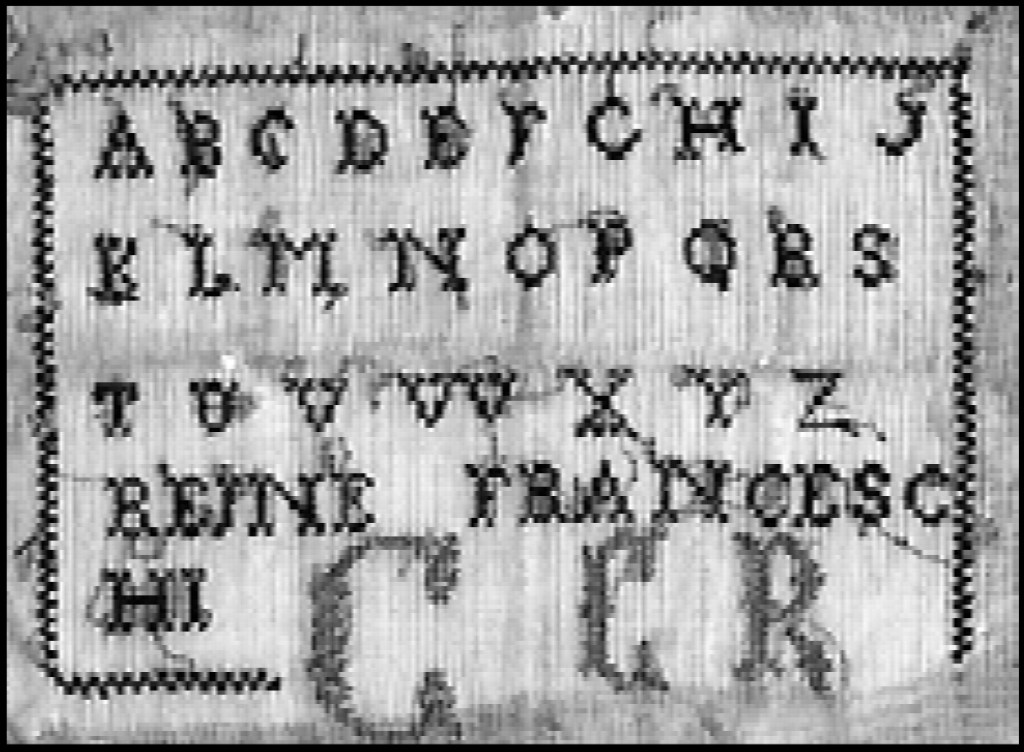 A B C D E F G H I J
K L M N O P Q R S
T U V W X Y Z
REINE FRANCESC
HI C G R